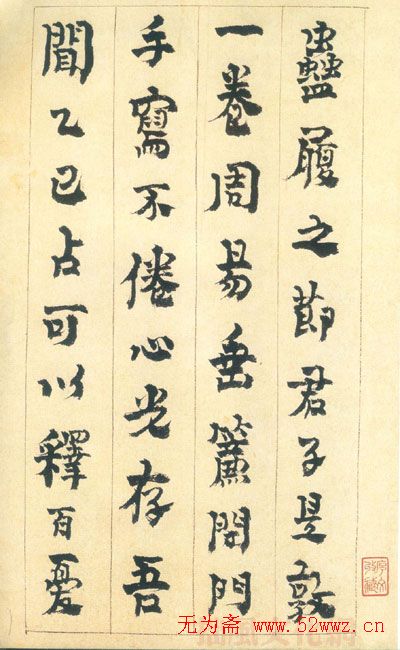 蠱履之節君子是敦
一卷周易垂簾閉門
手寫不倦心光存吾
聞乙巳占可以釋百憂
无为斋 www.52wwz.cn